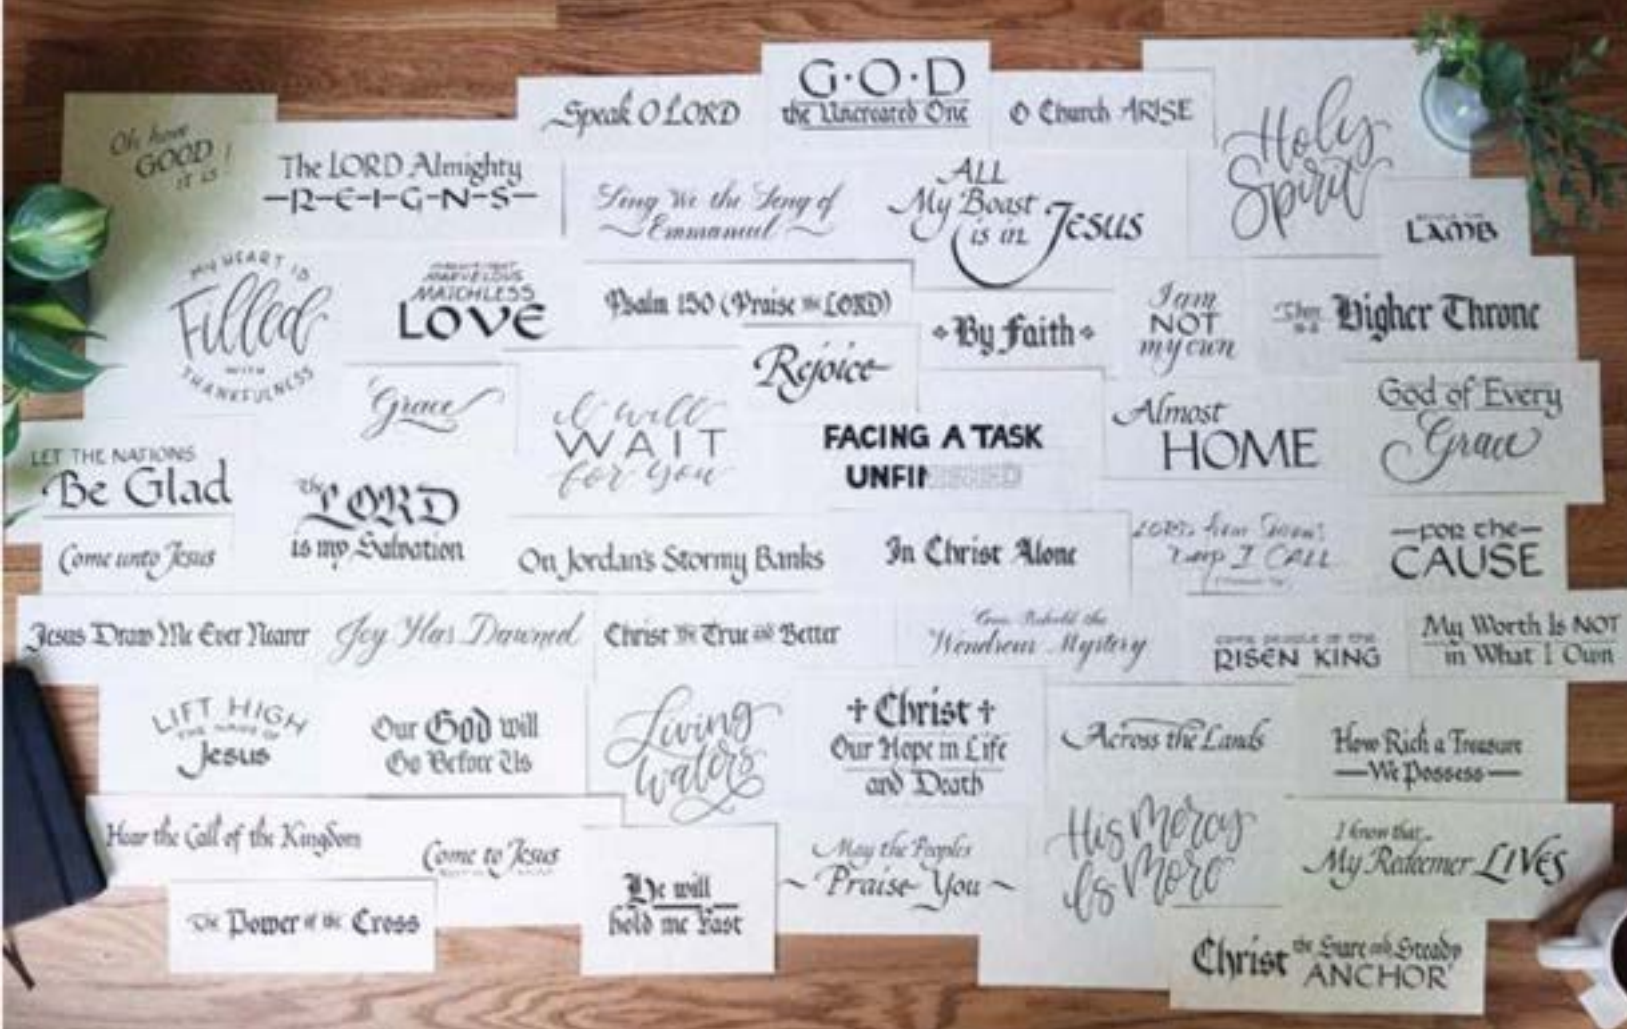 Oh, how
GOOD
it is!
The LORD Almighty
-R-E-I-G-N-S-
Speak O LORD
G·O·D
the Uncreated One
O Church ARISE
Holy
Spirit
Sing We the Song of
Emmanuel
ALL
My Boast
is in JESUS
LAMB
MY HEART IS
Filled
WITH
THANKFULNESS
MARVELOUS
MATCHLESS
LOVE
Psalm 150 (Praise the LORD)
By Faith
I am
NOT
my own
Higher Throne
Rejoice
Grace
I will
WAIT
for you
FACING A TASK
UNFINISHED
Almost
HOME
God of Every
Grace
LET THE NATIONS
Be Glad
The LORD
is my Salvation
Come unto Jesus
On Jordan's Stormy Banks
In Christ Alone
I CALL
-FOR the-
CAUSE
Jesus Draw Me Ever Nearer
Joy Has Dawned
Christ the True and Better
Come Behold the
Wondrous Mystery
COME PEOPLE OF THE
RISEN KING
My Worth Is NOT
in What I Own
LIFT HIGH
THE NAME OF
Jesus
Our God will
Go Before Us
Living
Waters
† Christ †
Our Hope in Life
and Death
Across the Lands
How Rich a Treasure
-We Possess-
Hear the Call of the Kingdom
Come to Jesus
He will
hold me Fast
May the Peoples
~ Praise You ~
His Mercy
Is More
I know that...
My Redeemer LIVES
The Power of the Cross
Christ the Sure and Steady
ANCHOR